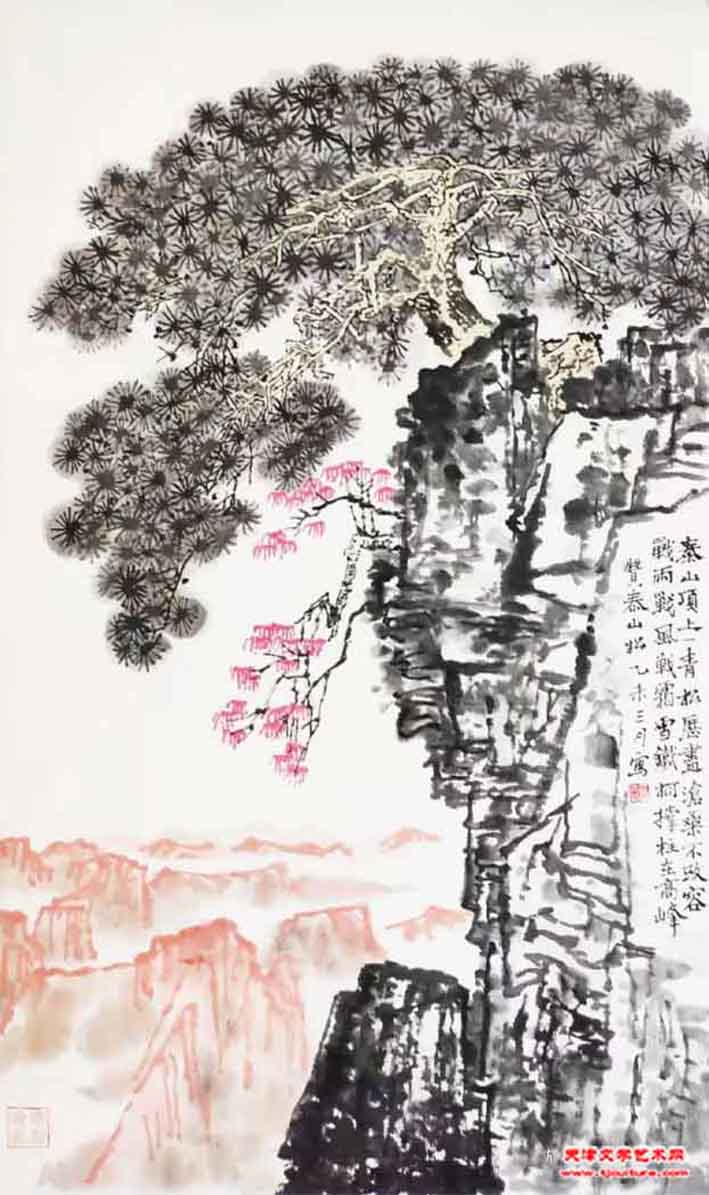 泰山頂上一青松歷盡滄桑不改容
戰雨戰風戰霜雪鐵柯撑柱在高峰
贊泰山松乙未三月寫
天津文学艺术网
www.tjculture.com